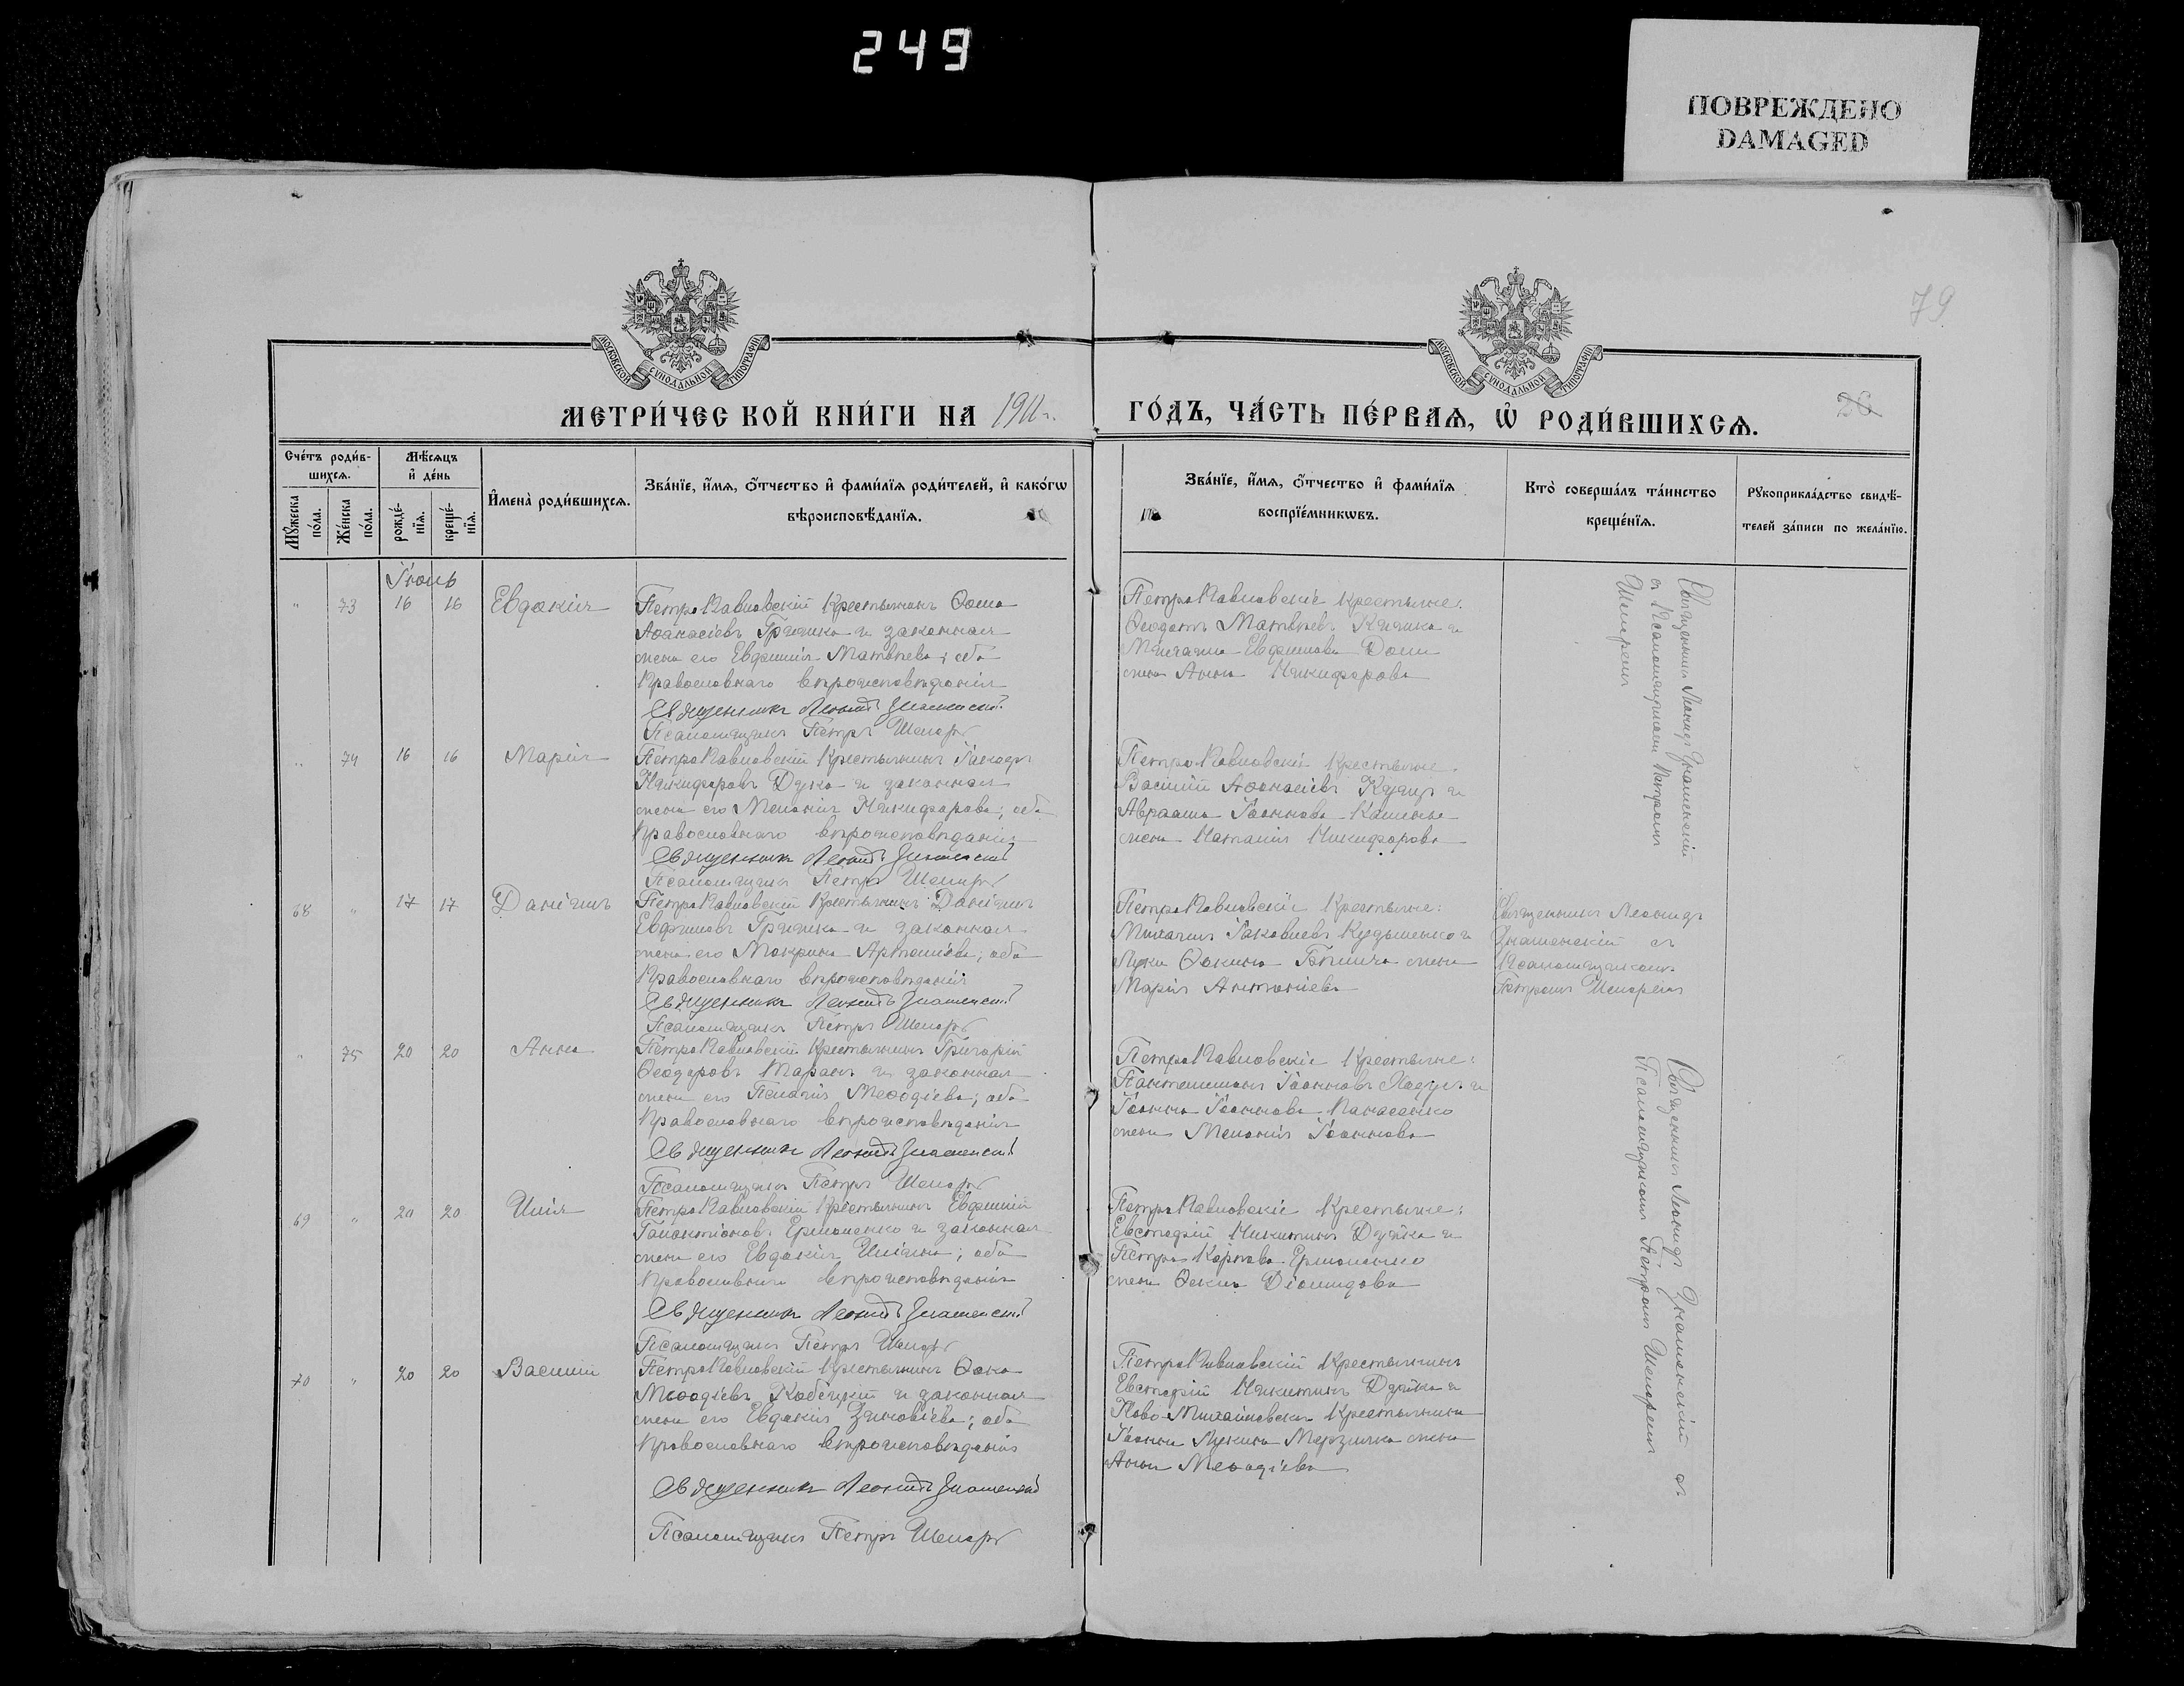 249
ПОВРЕЖДЕНО
DAMAGED
79
МОСКОВСКОЙ СѴНОДАЛЬНОЙ ТИПОГРАФІИ
МОСКОВСКОЙ СѴНОДАЛЬНОЙ ТИПОГРАФІИ
МЕТРИ́ЧЕСКОЙ КНИ́ГИ НА 1911 г. ГО́ДЪ, ЧА́СТЬ ПЕ́РВАЯ, Ѡ РОДИ́ВШИХСЯ.
26
Сче́тъ роди́в-
шихся.
Мѣ́сяцъ
и҆ де́нь
Мꙋ́жеска по́ла.
Же́нска по́ла.
рожде́-
нїя.
креще́-
нїя.
И҆мена̀ роди́вшихся.
Зва́нїе, и҆́мя, ѻ҆́тчество и҆ фами́лїя роди́телей, и҆ како́гѡ
вѣроисповѣ́данїя.
Зва́нїе, и҆́мя, ѻ҆́тчество и҆ фами́лїя
воспрїе́мникѡвъ.
Кто̀ соверша́лъ та́инство
креще́нїя.
Рꙋкоприкла́дство свидѣ́-
телей за́писи по жела́нїю.
Іюнь
" 73 16 16 Евдокія
Петро Павловскій Крестьянинъ Ѳома
Аѳанасіевъ Гришко и законная
жена его Евфимія Матвѣева; оба
Православнаго вѣроисповѣданія
Священникъ Леонидъ Знаменскій
Псаломщикъ Петръ Шепарь
Петро Павловскіе крестьяне:
Ѳеодотъ Матвѣевъ Кичико и
Михаила Евфимова
жена Анна Никифорова
Священникъ Леонидъ Знаменскій
съ Псаломщикомъ Петромъ
Шепаремъ
" 74 16 16 Марія
Петро Павловскій Крестьянинъ Іаковъ
Никифоровъ Дуко и законная
жена его Меланія Никифорова; оба
Православнаго вѣроисповѣданія
Священникъ Леонидъ Знаменскій
Псаломщикъ Петръ Шепарь
Петро-Павловскіе Крестьяне:
Василій Аѳанасіевъ Куцир и
Авраама Іоаннова
жена Наталія Никифорова
68 " 17 17 Даніилъ
Петро Павловскій Крестьянинъ Даніилъ
Евфимовъ Гришко и законная
жена его Макрина Артеміева; оба
Православнаго вѣроисповѣданія
Священникъ Леонидъ Знаменскій
Псаломщикъ Петръ Шепарь
Петро Павловскіе Крестьяне:
Михаилъ Іаковлевъ Кузьменко и
Луки Ѳокина жена
Марія Антоніева
Священникъ Леонидъ
Знаменскій съ
Псаломщикомъ
Петромъ Шепаремъ
" 75 20 20 Анна
Петро Павловскій Крестьянинъ Григорій
Ѳеодоровъ Таранъ и законная
жена его Пелагія Меѳодіева; оба
Православнаго вѣроисповѣданія
Священникъ Леонидъ Знаменскій
Псаломщикъ Петръ Шепарь
Петро Павловскіе Крестьяне:
Пантелеимонъ Іоанновъ и
Іоанна Іоаннова Панасенко
жена Меланія Іоаннова
Священникъ Леонидъ Знаменскій съ
Псаломщикомъ Петромъ Шепаремъ
69 " 20 20 Илія
Петро Павловскій Крестьянинъ Евфимій
Галактіоновъ Ермоленко и законная
жена его Евдокія Иліина; оба
Православнаго вѣроисповѣданія
Священникъ Леонидъ Знаменскій
Псаломщикъ Петръ Шепарь
Петро Павловскіе Крестьяне:
Евстафій Никитинъ Дудка и
Петра Карпова Ермоленко
жена Ѳекла Діомидова
70 " 20 20 Василій
Петро Павловскій Крестьянинъ Ѳока
Меѳодіевъ Кобецкій и законная
жена его Евдокія Зиновіева; оба
Православнаго вѣроисповѣданія
Священникъ Леонидъ Знаменскій
Псаломщикъ Петръ Шепарь
Петро Павловскій Крестьянинъ
Евстафій Никитинъ Дудка и
Ново-Михайловскаго Крестьянина
Іоанна Лукина Мерзляка жена
Анна Меѳодіева